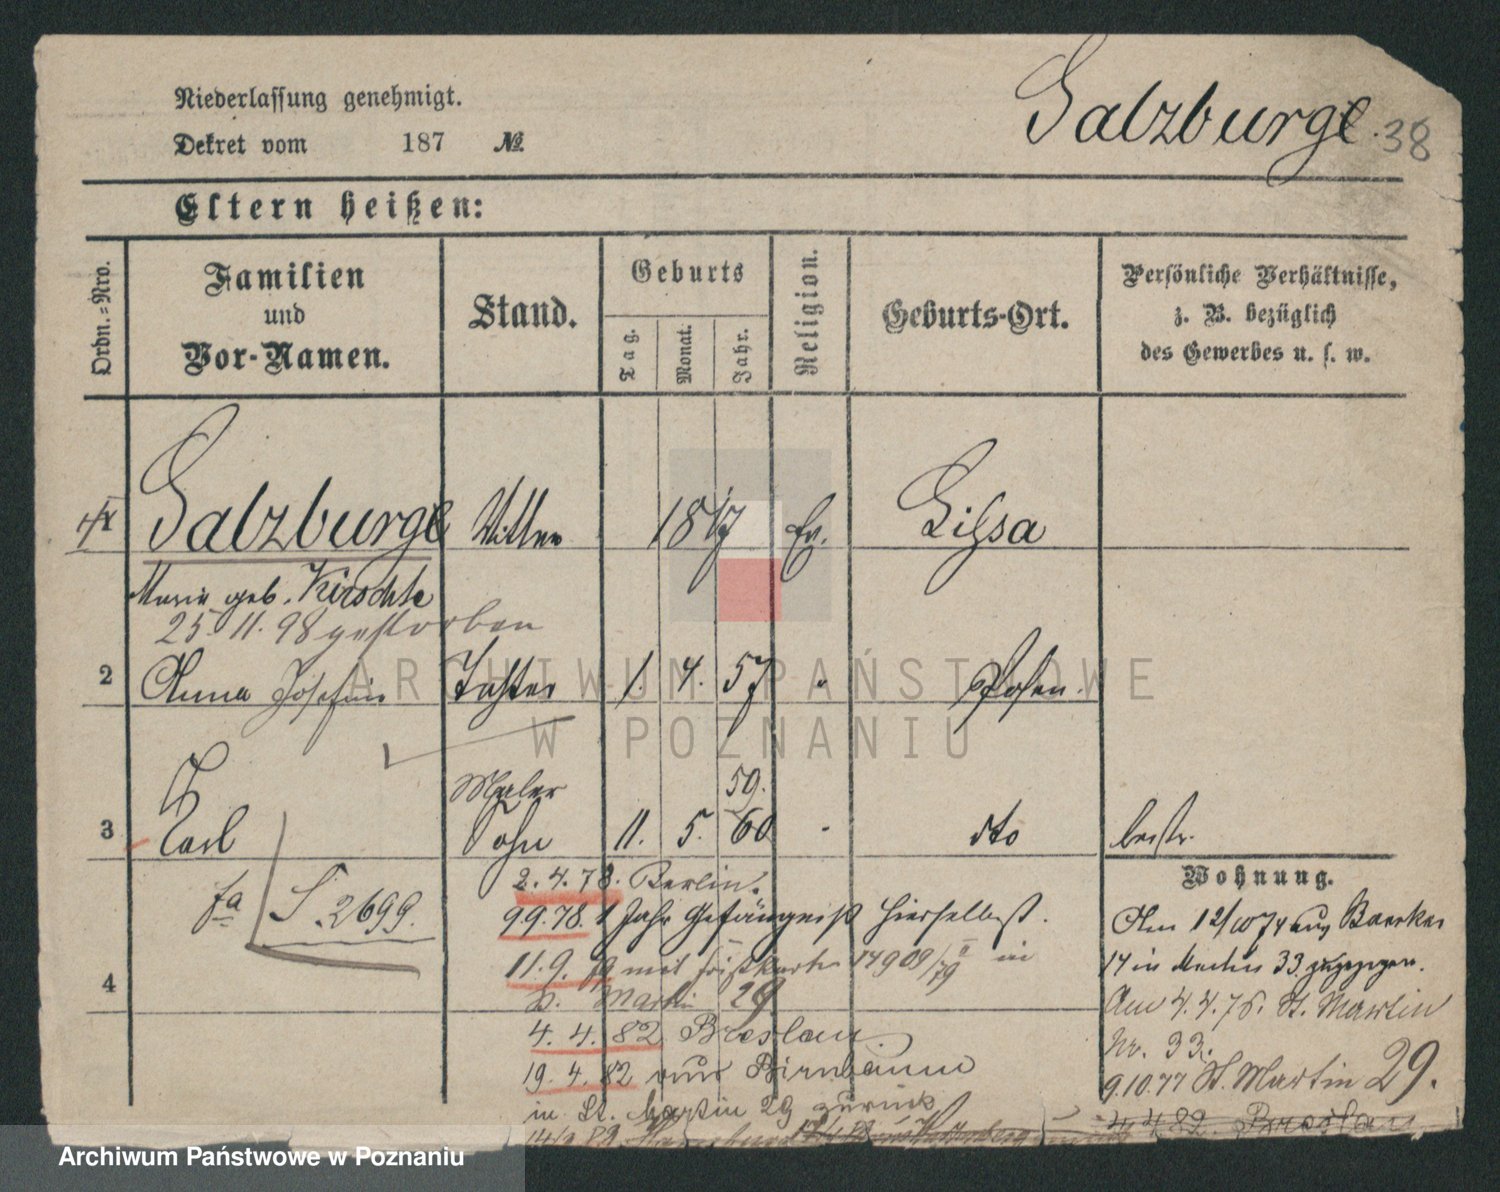 Niederlassung genehmigt.
Dekret vom 187 №
Salzburge. 38
Eltern heißen:
Ordn.-Nro.
Familien
und
Vor-Namen.
Stand.
Geburts
Tag.
Monat.
Jahr.
Religion.
Geburts-Ort.
Persönliche Verhältnisse,
z. B. bezüglich
des Gewerbes u. s. w.
Salzburge 1817 Ev. Lissa
Marie geb. Kirschke
25. 11. 98 gestorben
2 Anna Josefine Tochter 1. 4. 57 " Posen.
Maler 59.
3 Carl Sohn 11. 5. 60 dto
S. 2699.
2. 4. 78. Berlin.
9 9.78. 1 Jahr Gefängniß hierselbst.
11. 9. 79 mit 14909/79 in
St. Martin 29
4. 4. 82 Breslau.
19. 4. 82 aus Birnbaum
in St. Martin 29 zurück
Wohnung.
Am 12/10 74 aus
14 in Martin 33. zugezogen.
Am 4. 4. 75. St. Martin
Nr. 33.
9.10.77 St. Martin 29.
4 4 82 Breslau
4
ARCHIWUM PAŃSTWOWE
W POZNANIU
Archiwum Państwowe w Poznaniu